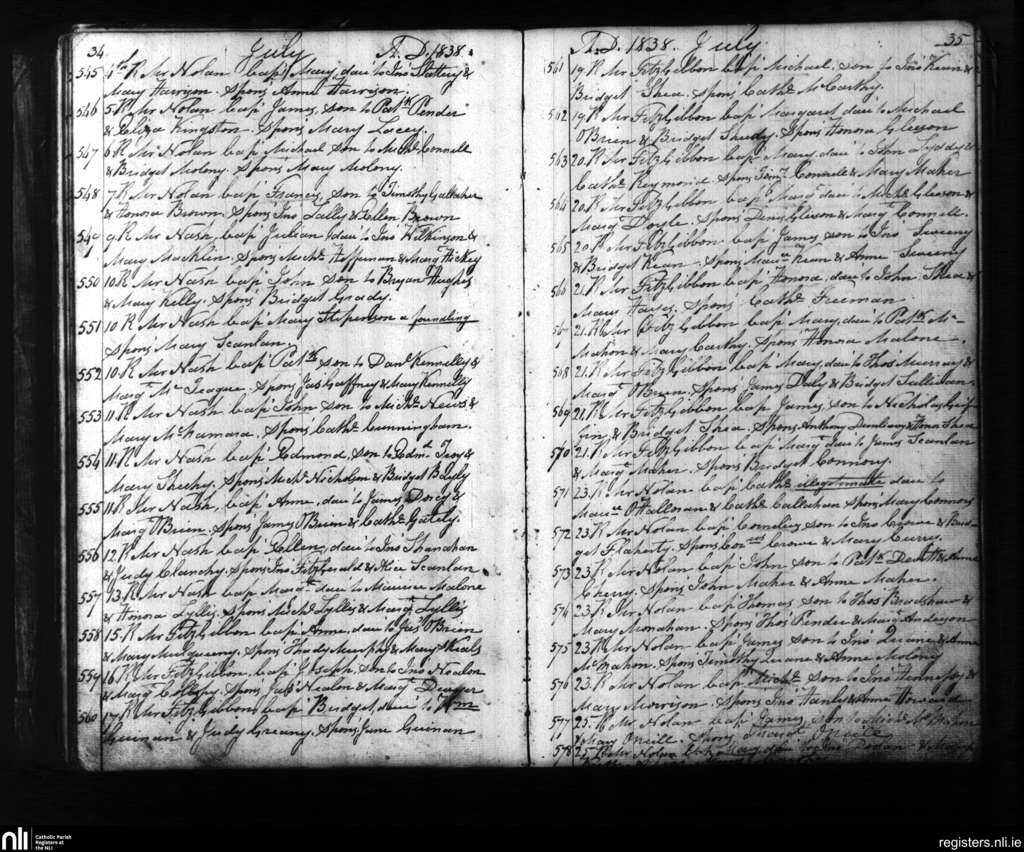 34 July A.D. 1838.
545 4th R Mr Nolan bap Mary, dau to Jno Slattery &
Mary Harrison. Spons Anne Harrison.
546 5 R Mr Nolan bap James, son to Patk Pender
& Eliza Kingston. Spons Mary Lacey.
547 6 R Mr Nolan bap Michael son to Michl Connell
& Bridget Molony. Spons Mary Molony.
548 7 R Mr Nolan bap Francis, son to Timothy Gallaher
& Honora Brown. Spons Jno Lally & Ellen Brown
549 9 R Mr Nash, bap Julian dau to Jno Wilkinson &
Mary Macklin. Spons Michl Heffernan & Margt Hickey
550 10 R Mr Nash bap John son to Bryan Hughes
& Mary Kelly. Spons Bridget Grady.
551 10 R Mr Nash bap Mary Steperson a foundling
Spons Mary Scanlan.
552 10 R Mr Nash bap Patk son to Danl Kennelly &
Margt Mc Teague. Spons Jas Gaffney & Mary Kennelly
553 11 R Mr Nash bap John son to Michl &
Mary McNamara. Spons Cathe Cunningham.
554 11 R Mr Nash bap Edmond, son to Edmd Troy &
Mary Sheehy. Spons Michl Nicholson & Bridget
555 11 R Mr Nash, bap Anne, dau to James Darcy &
Margt O'Brien. Spons James O'Brien & Cathe Gately.
556 12 R Mr Nash bap Ellen, dau to Jno Shanahan
& Judy Clanchy. Spons Jno Fitzgerald & Alice Scanlan.
557 13 R Mr Nash bap Margt dau to Maurice Malone
& Honora Lyllis. Spons Michl Lyllis & Margt Lyllis
558 15 R Mr FitzGibbon bap Anne, dau to Jas O'Brien
& Mary Mulqueeny. Spons Thady Murphy & Mary Sheals
559 16 R Mr FitzGibbon, bap Joseph, son to Jno Nealon
& Margt . Spons Jas Nealon & Margt Dwyer
560 17 R Mr FitzGibbon bap Bridget, dau to Wm
Guinan & Judy Greany. Spons Jane Guinan
A.D. 1838. July 35
561 19 R Mr FitzGibbon bap Michael son to Jno Kean &
Bridget Shea. Spons Cathe McCarthy.
562 19 R Mr FitzGibbon bap Margaret dau to Michael
O'Brien & Bridget . Spons Honora Gleeson
563 20 R Mr FitzGibbon bap Mary, dau to &
Cathe Reymond Spons Connell & Mary Maher
564 20 R Mr FitzGibbon bap Margt dau to Michl Gleeson &
Margt Doyle. Spons Denis Gleeson & Margt Connell.
565 20 R Mr FitzGibbon bap James son to Jno Sweeny
& Bridget Kean. Spons Maurce Kean & Anne Sweeny
566 21 R Mr FitzGibbon bap Honora dau to John Shea &
Mary Hayes. Spons Cathe Freeman
21 R Mr FitzGibbon bap Mary, dau to Patk Mc
Mahon & Mary Carthy. Spons Honora Malone.
568 21 R Mr FitzGibbon bap Mary, dau to Thos Murray &
Margt O'Brien. Spons James Daly & Bridget Sullivan.
569 21 R Mr FitzGibbon bap James, son to Nicholas Grif
fin, & Bridget Shea. Spons Anthony & Shea
570 21 R Mr FitzGibbon bap Margt dau to James Scanlan
& Margt Maher. Spons Bridget Connory.
571 23 R Mr Nolan bap Cathe illegitimate dau to
Maurce O'Halloran & Cathe Callaghan Spons Mary Connors
572 23 R Mr Nolan bap Cornelius son to Jno Crowe & Brid
get Flaherty. Spons Corns Crowe & Mary Curry.
573 23 R Mr Nolan bap John son to Patk & Anne
Cherry. Spons John Maher & Anne Maher.
574 23 R Mr Nolan bap Thomas son to Thos Bradshaw &
Mary Monahan. Spons Thos Pender & Margt Anderson
575 23 R Mr Nolan bap James son to Jno Quane & Anne
McMahon. Spons Timothy Quane & Anne Molony
576 23 R Mr Nolan bap Michl son to Jno Hennessy &
Mary Morrison. Spons Jno Hanly & Anne Howard
577 25 R Mr Nolan bap James son to
& Mary O'Neill. Spons Margt O'Neille
578 25 R Mr Nolan bap Mary dau to Jno
nli
Catholic Parish
Registers at
the NLI
registers.nli.ie